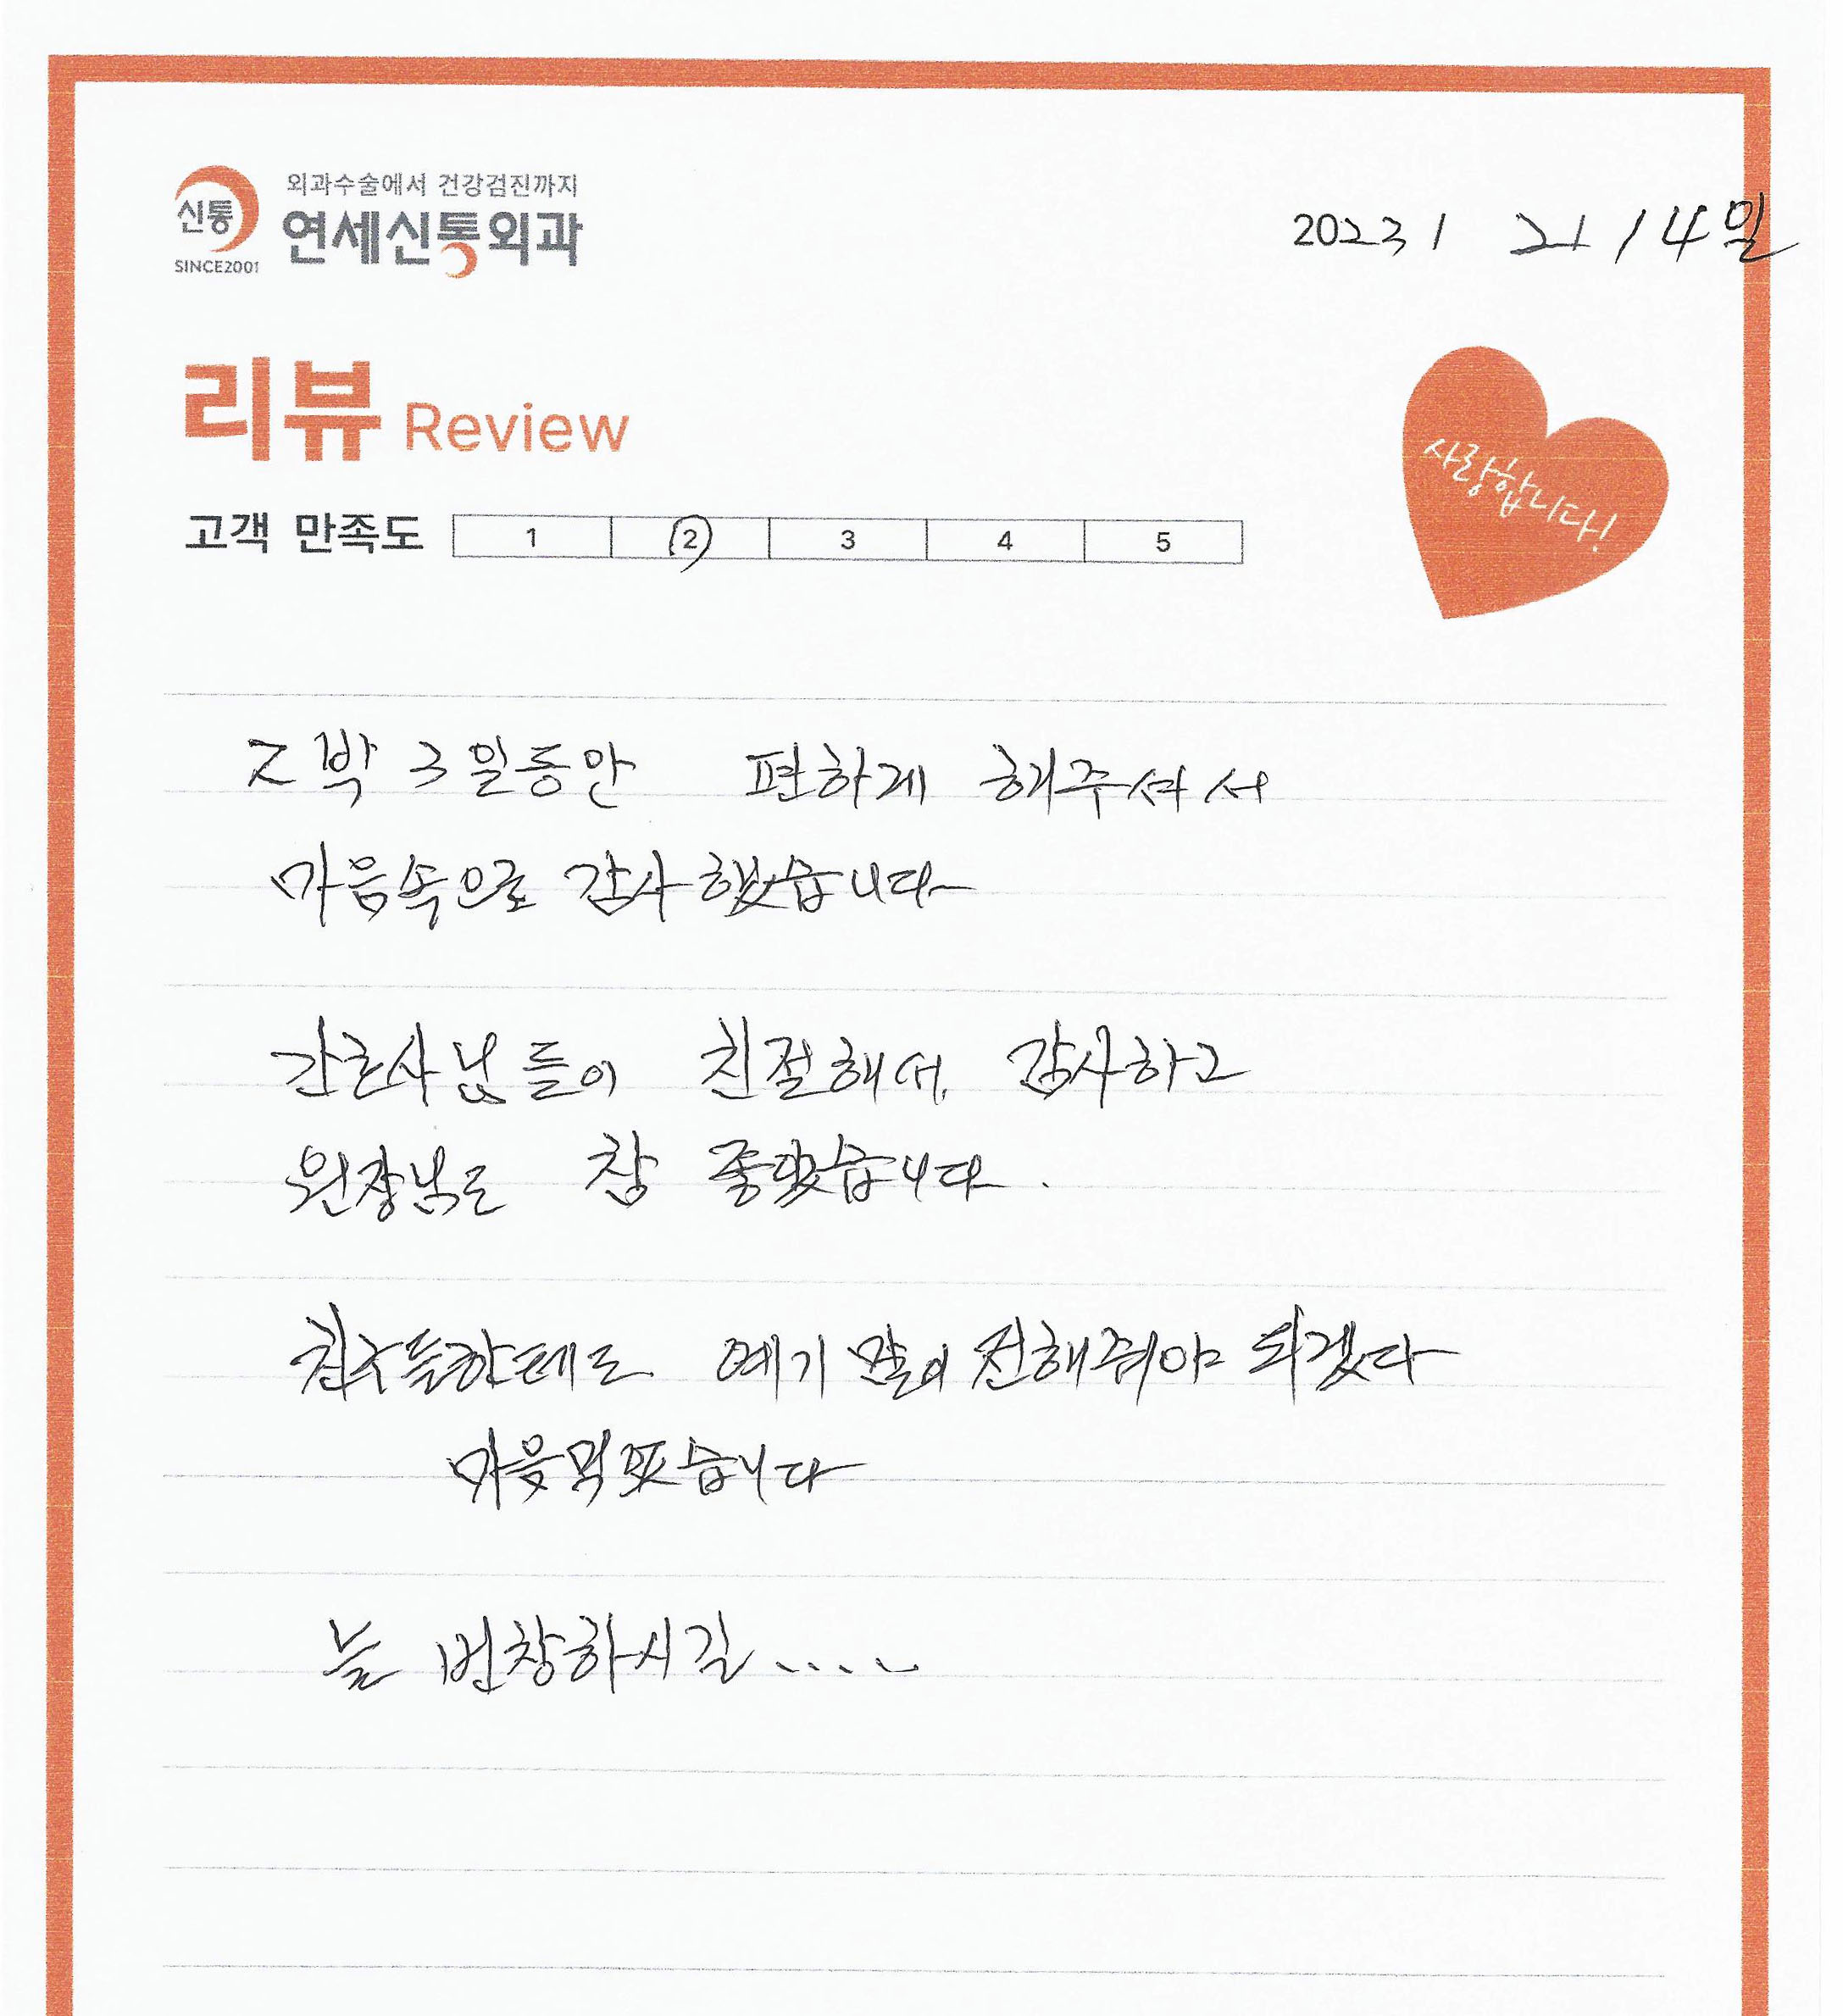 외과수술에서 건강검진까지
신통
연세신통외과
SINCE2001
2023 / 2 / 14일
리뷰 Review
사랑합니다!
고객 만족도 1 2 3 4 5
2박 3일동안 편하게 해주셔서
마음속으로 감사했습니다
간호사님들이 친절해서 감사하고
원장님도 참 좋았습니다.
친구들한테도 얘기 많이 전해줘야 되겠다
마음먹었습니다
늘 번창하시길....